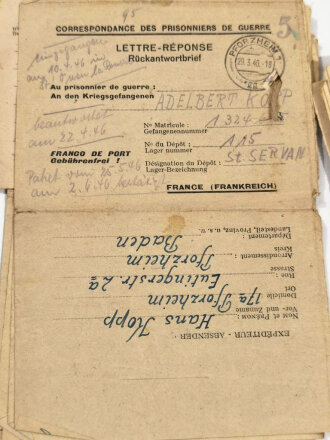 95
CORRESPONDANCE DES PRISONNIERS DE GUERRE
LETTRE-RÉPONSE
Rückantwortbrief
PFORZHEIM 1
29.3.46.-18
eingegangen
10.4.46 in
Au prisonnier de guerre :
An den Kriegsgefangenen
ADELBERT KOPP
beantwortet
am 22.4.46
No Matricule :
Gefangenennummer
1324
No du Dépôt :
Lager nummer
115
FRANCO DE PORT
Gebührenfrei !
Désignation du Dépôt :
Lager-Bezeichnung
St. SERVAN
Paket vom 25.5.46
am 2.6.46
FRANCE (FRANKREICH)
EXPÉDITEUR - ABSENDER :
Nom et Prénom :
Vor- und Zuname
Hans Kopp
Domicile
Ort
17a Pforzheim
Rue :
Strasse
Eutingerstr. 2a
Arrondissement :
Kreis
Pforzheim
Département :
Landesteil, Provinz, u.s.w.
Baden